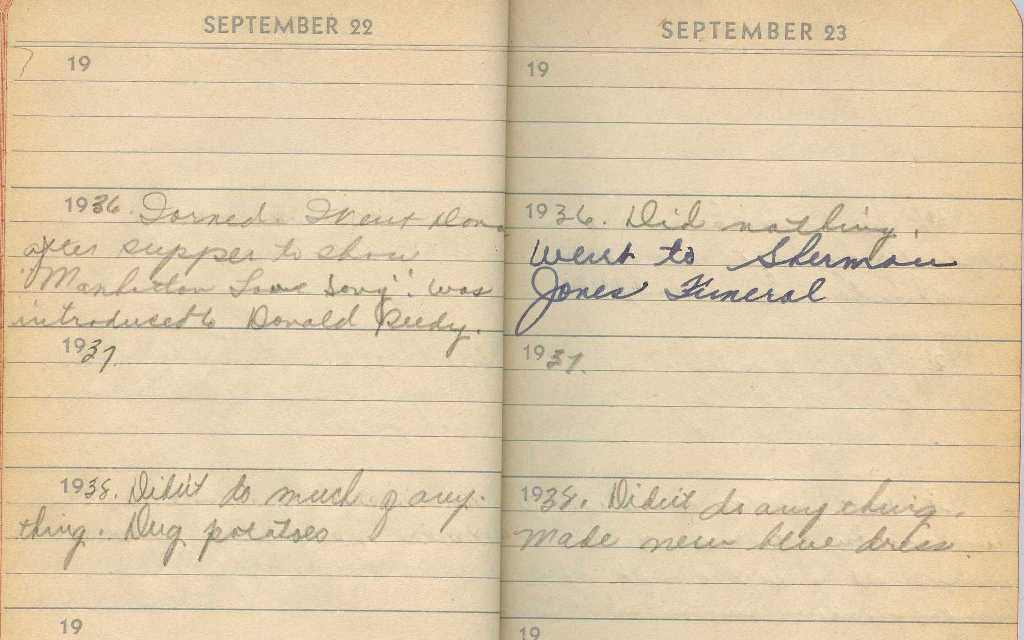 SEPTEMBER 22
19
1936. I went
after supper to show
"Manhattan Love Song". was
introduced to Donald
1937.
1938. Didn't do much of any-
thing. Dug potatoes
19
SEPTEMBER 23
19
1936. Did nothing.
Went to Sherman
Jones Funeral
1937.
1938. Didn't do any thing.
Made new blue dress.
19